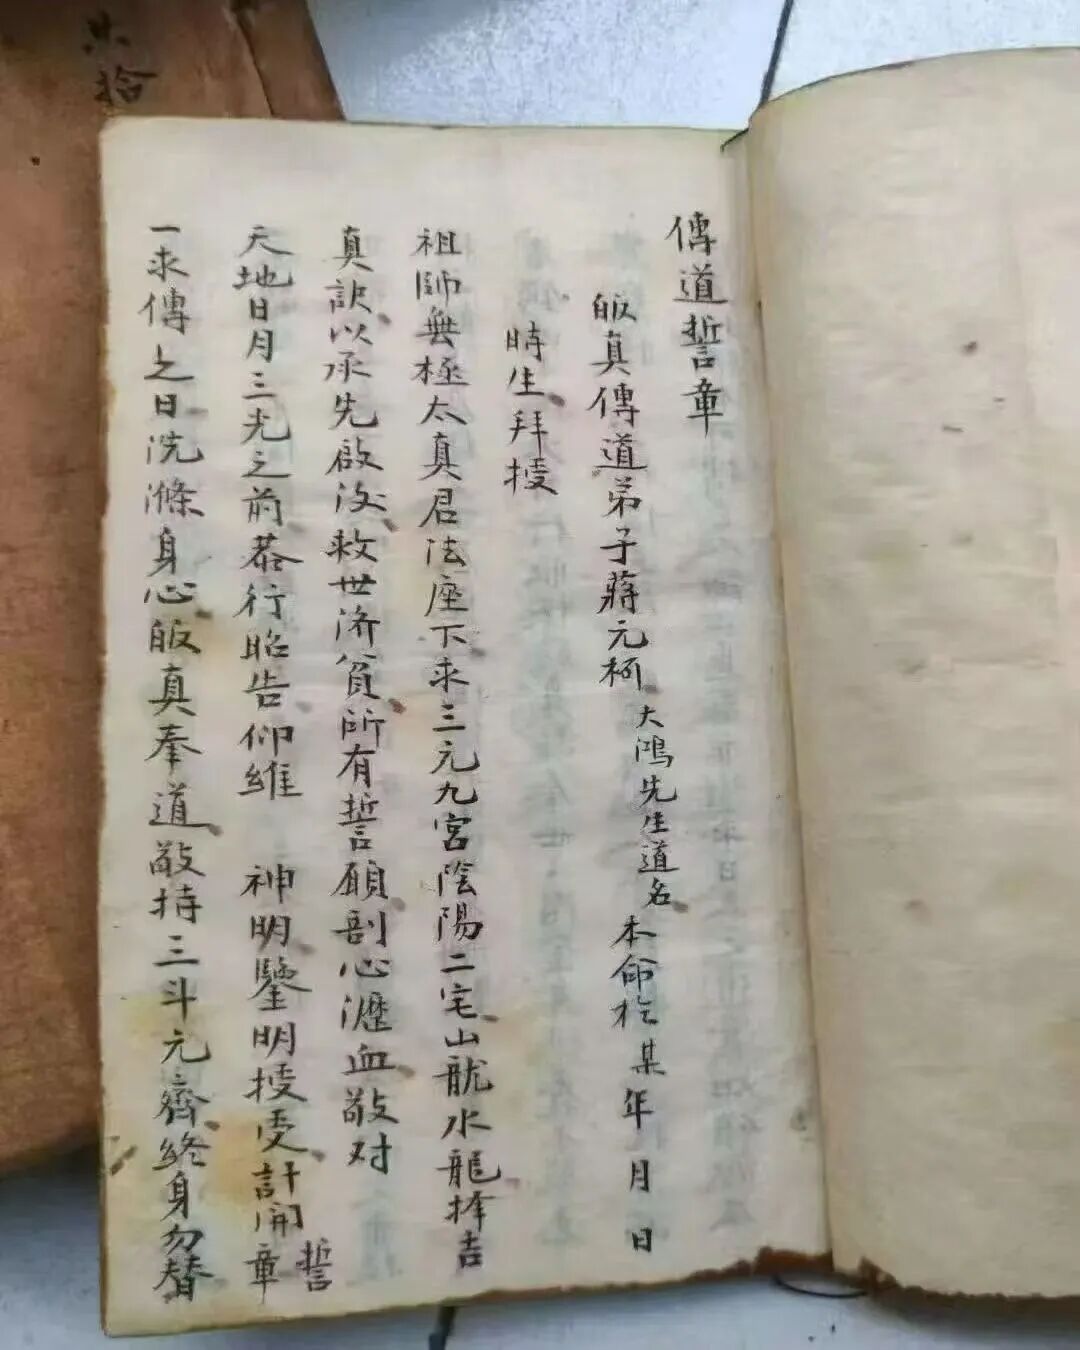 傳道誓章
皈真傳道弟子蔣元柯大鴻先生道名本命於某年月日
時生拜授
祖師無極太真君法座下求三元九宮陰陽二宅山龍水龍择吉
真訣以承先啟後救世济貧所有誓願剖心瀝血敬对
天地日月三光之前恭行昭告仰維 神明鑒明授受計開誓章
一求傳之日洗滌身心皈真奉道敬持三斗元齊終身勿替
拾